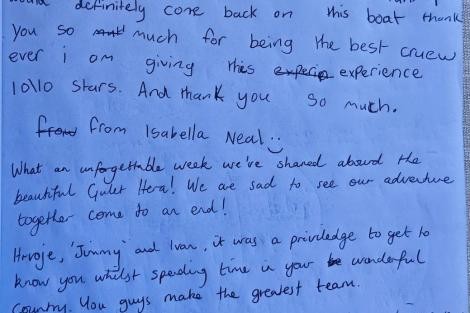 would definitely cone back on this boat thank
you so much for being the best cruew
ever i am giving this experience
10\10 stars. And thank you so much.
from Isabella Neal
What an unforgettable week we've shared aboard the
beautiful Gulet Hera! We are sad to see our adventure
together come to an end!
Hrvoje, 'Jimmy' and Ivan, it was a priviledge to get to
know you whilst spending time in your wonderful
Country. You guys make the greatest team.